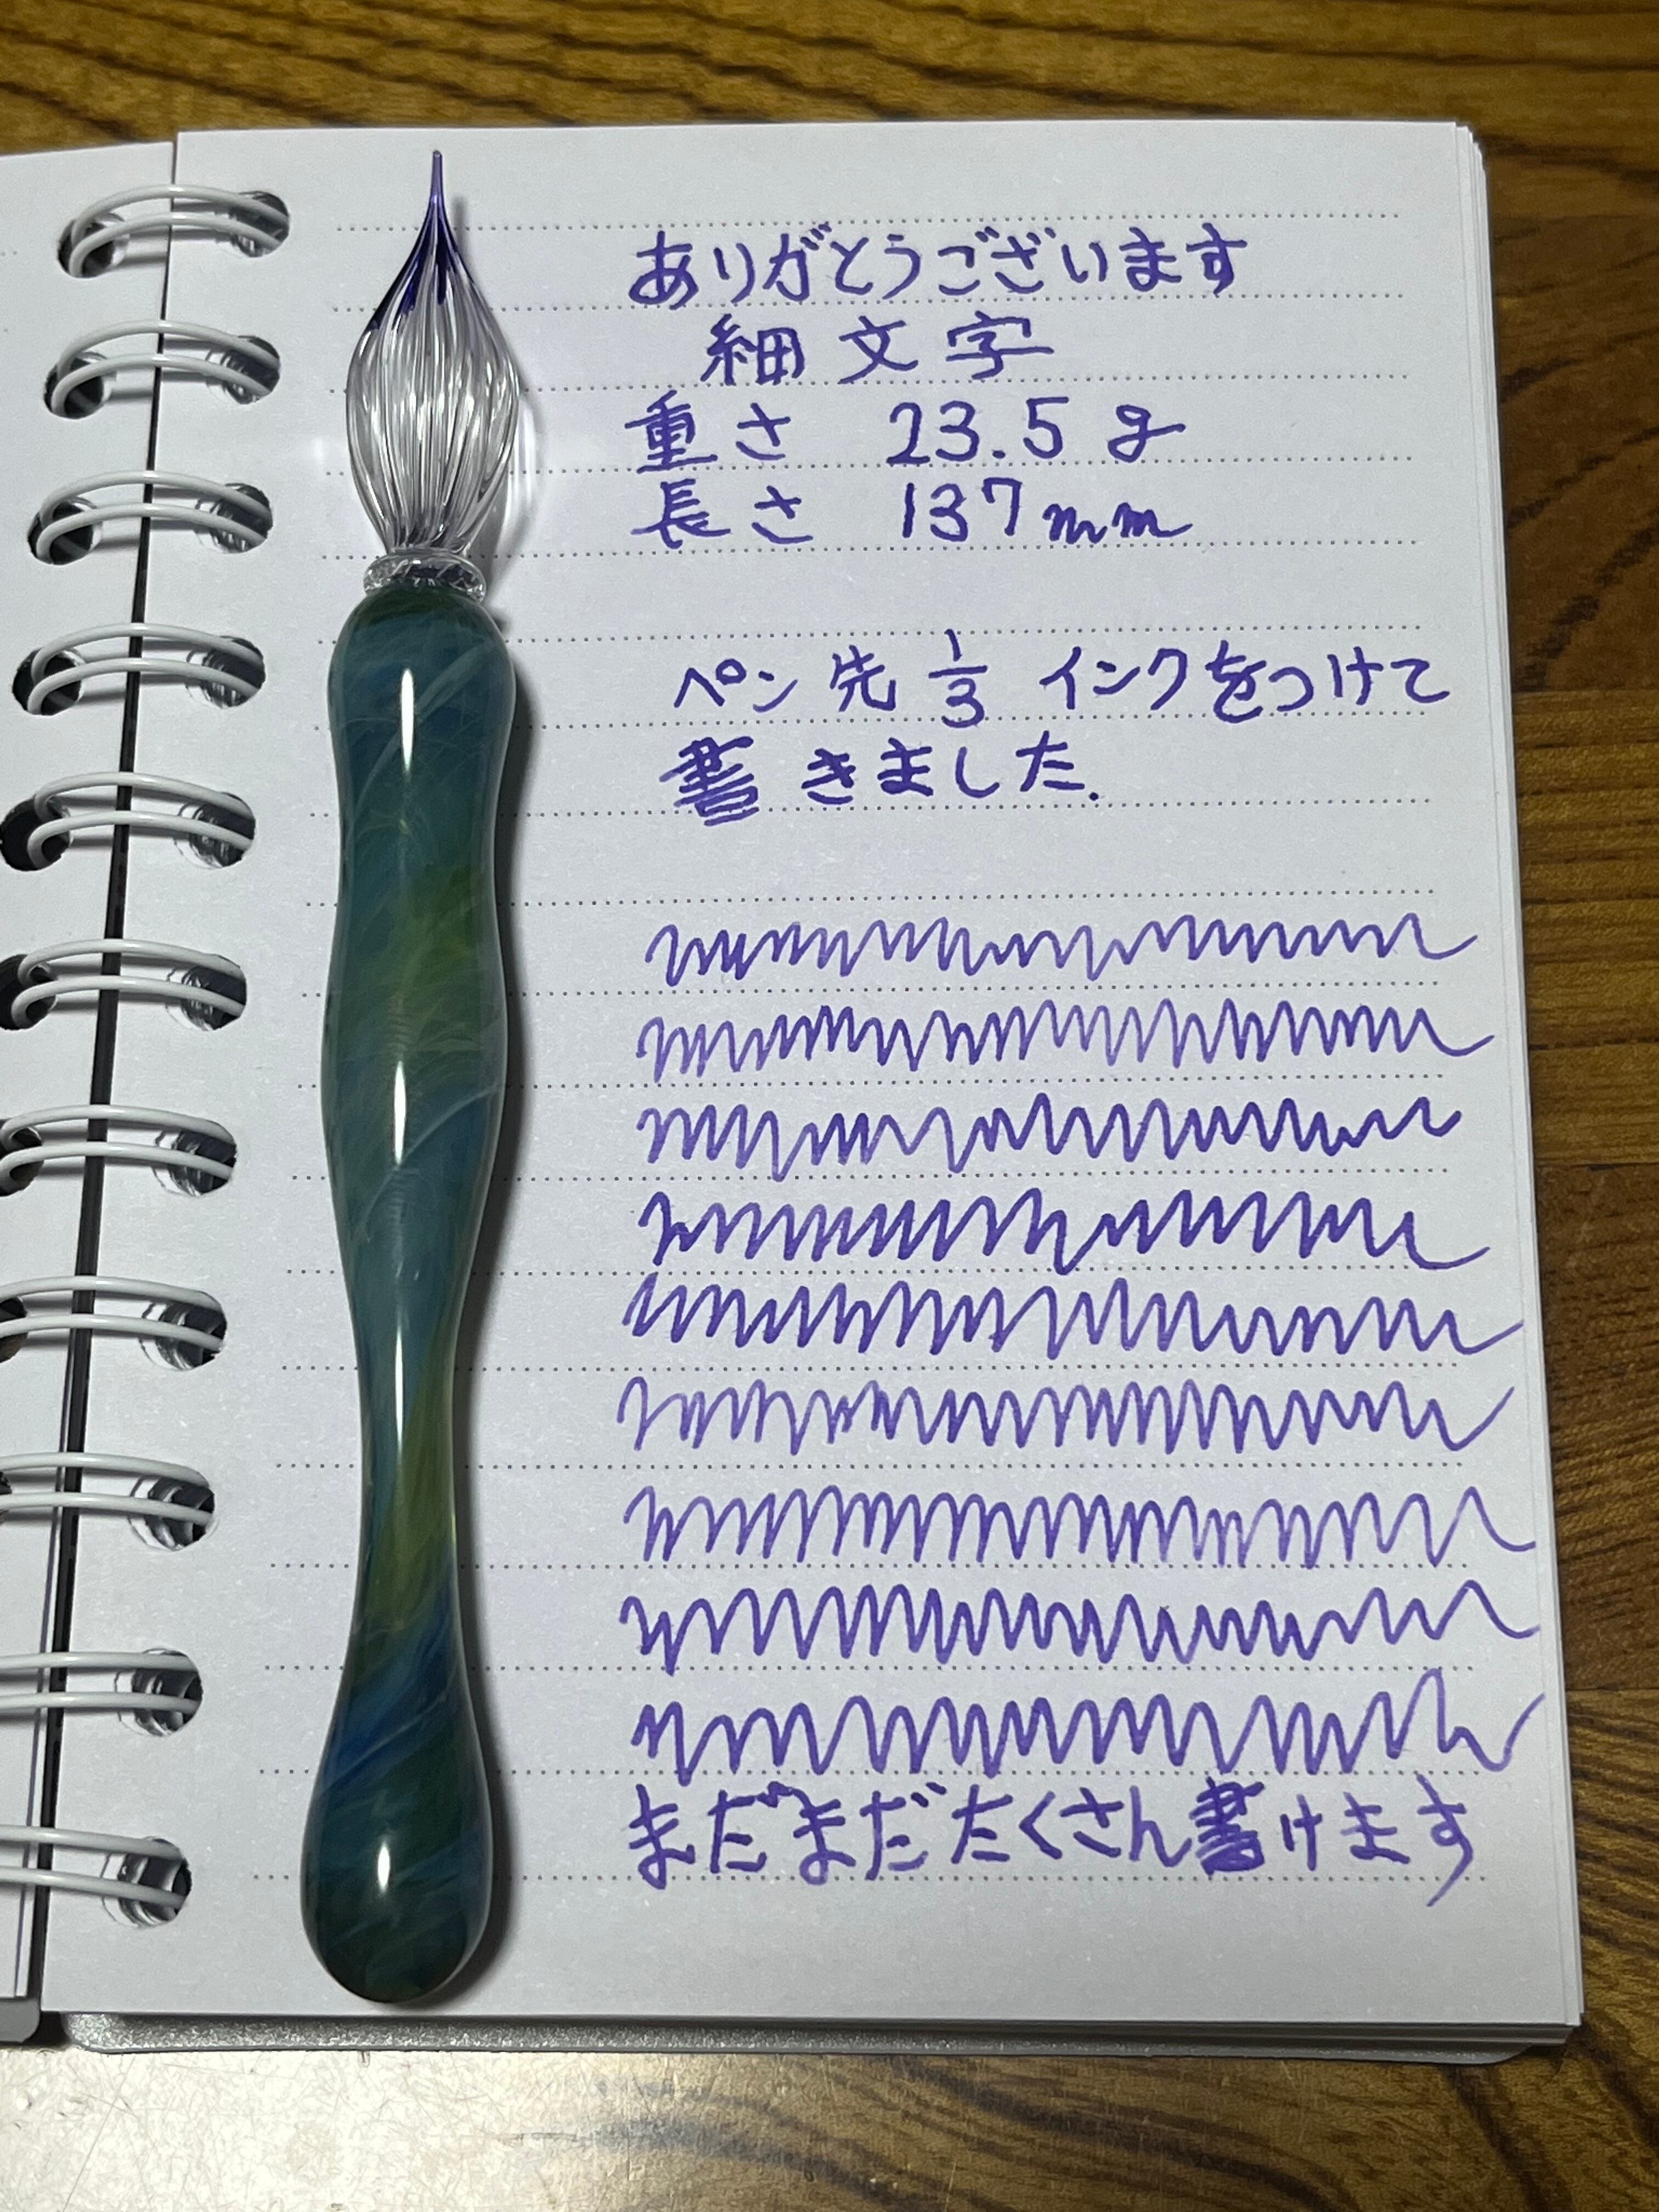 ありがとうございます
細文字
重さ 23.5g
長さ 137mm
ペン先 1/3 インクをつけて
書きました.
まだまだたくさん書けます